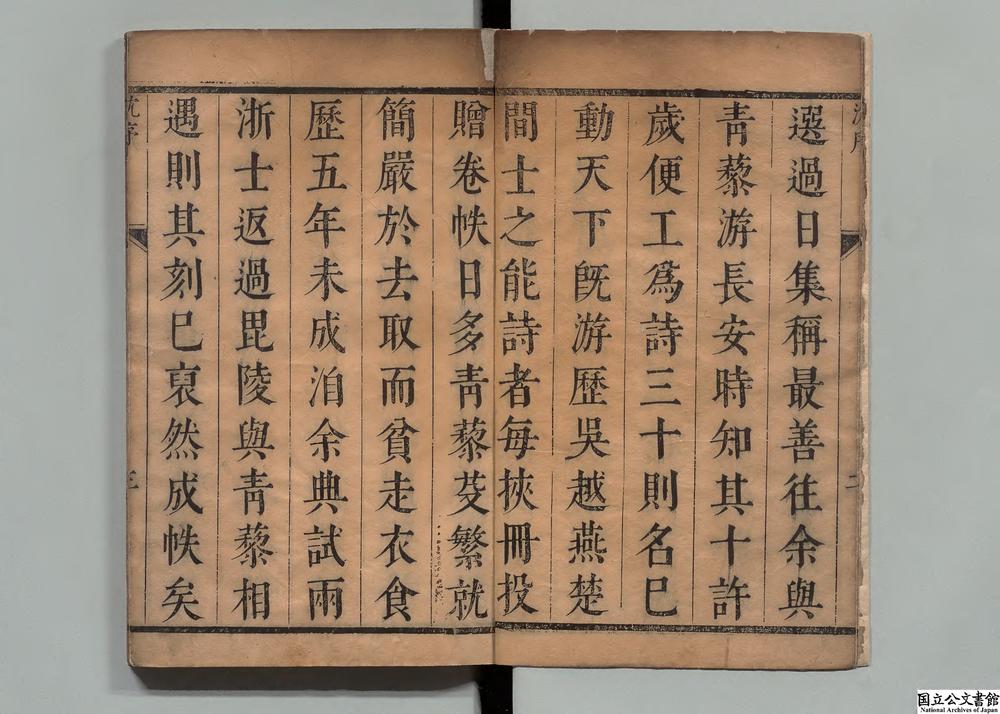 選過日集稱最善往余與
青藜游長安時知其十許
歲便工爲詩三十則名巳
動天下旣游歷吳越燕楚
間士之能詩者每挾冊投
贈卷帙日多青藜芟繁就
簡嚴於去取而貧走衣食
歷五年未成洎余典試兩
浙士返過毘陵與青藜相
遇則其刻巳裒然成帙矣
沈序
三
国立公文書館
National Archives of Japan